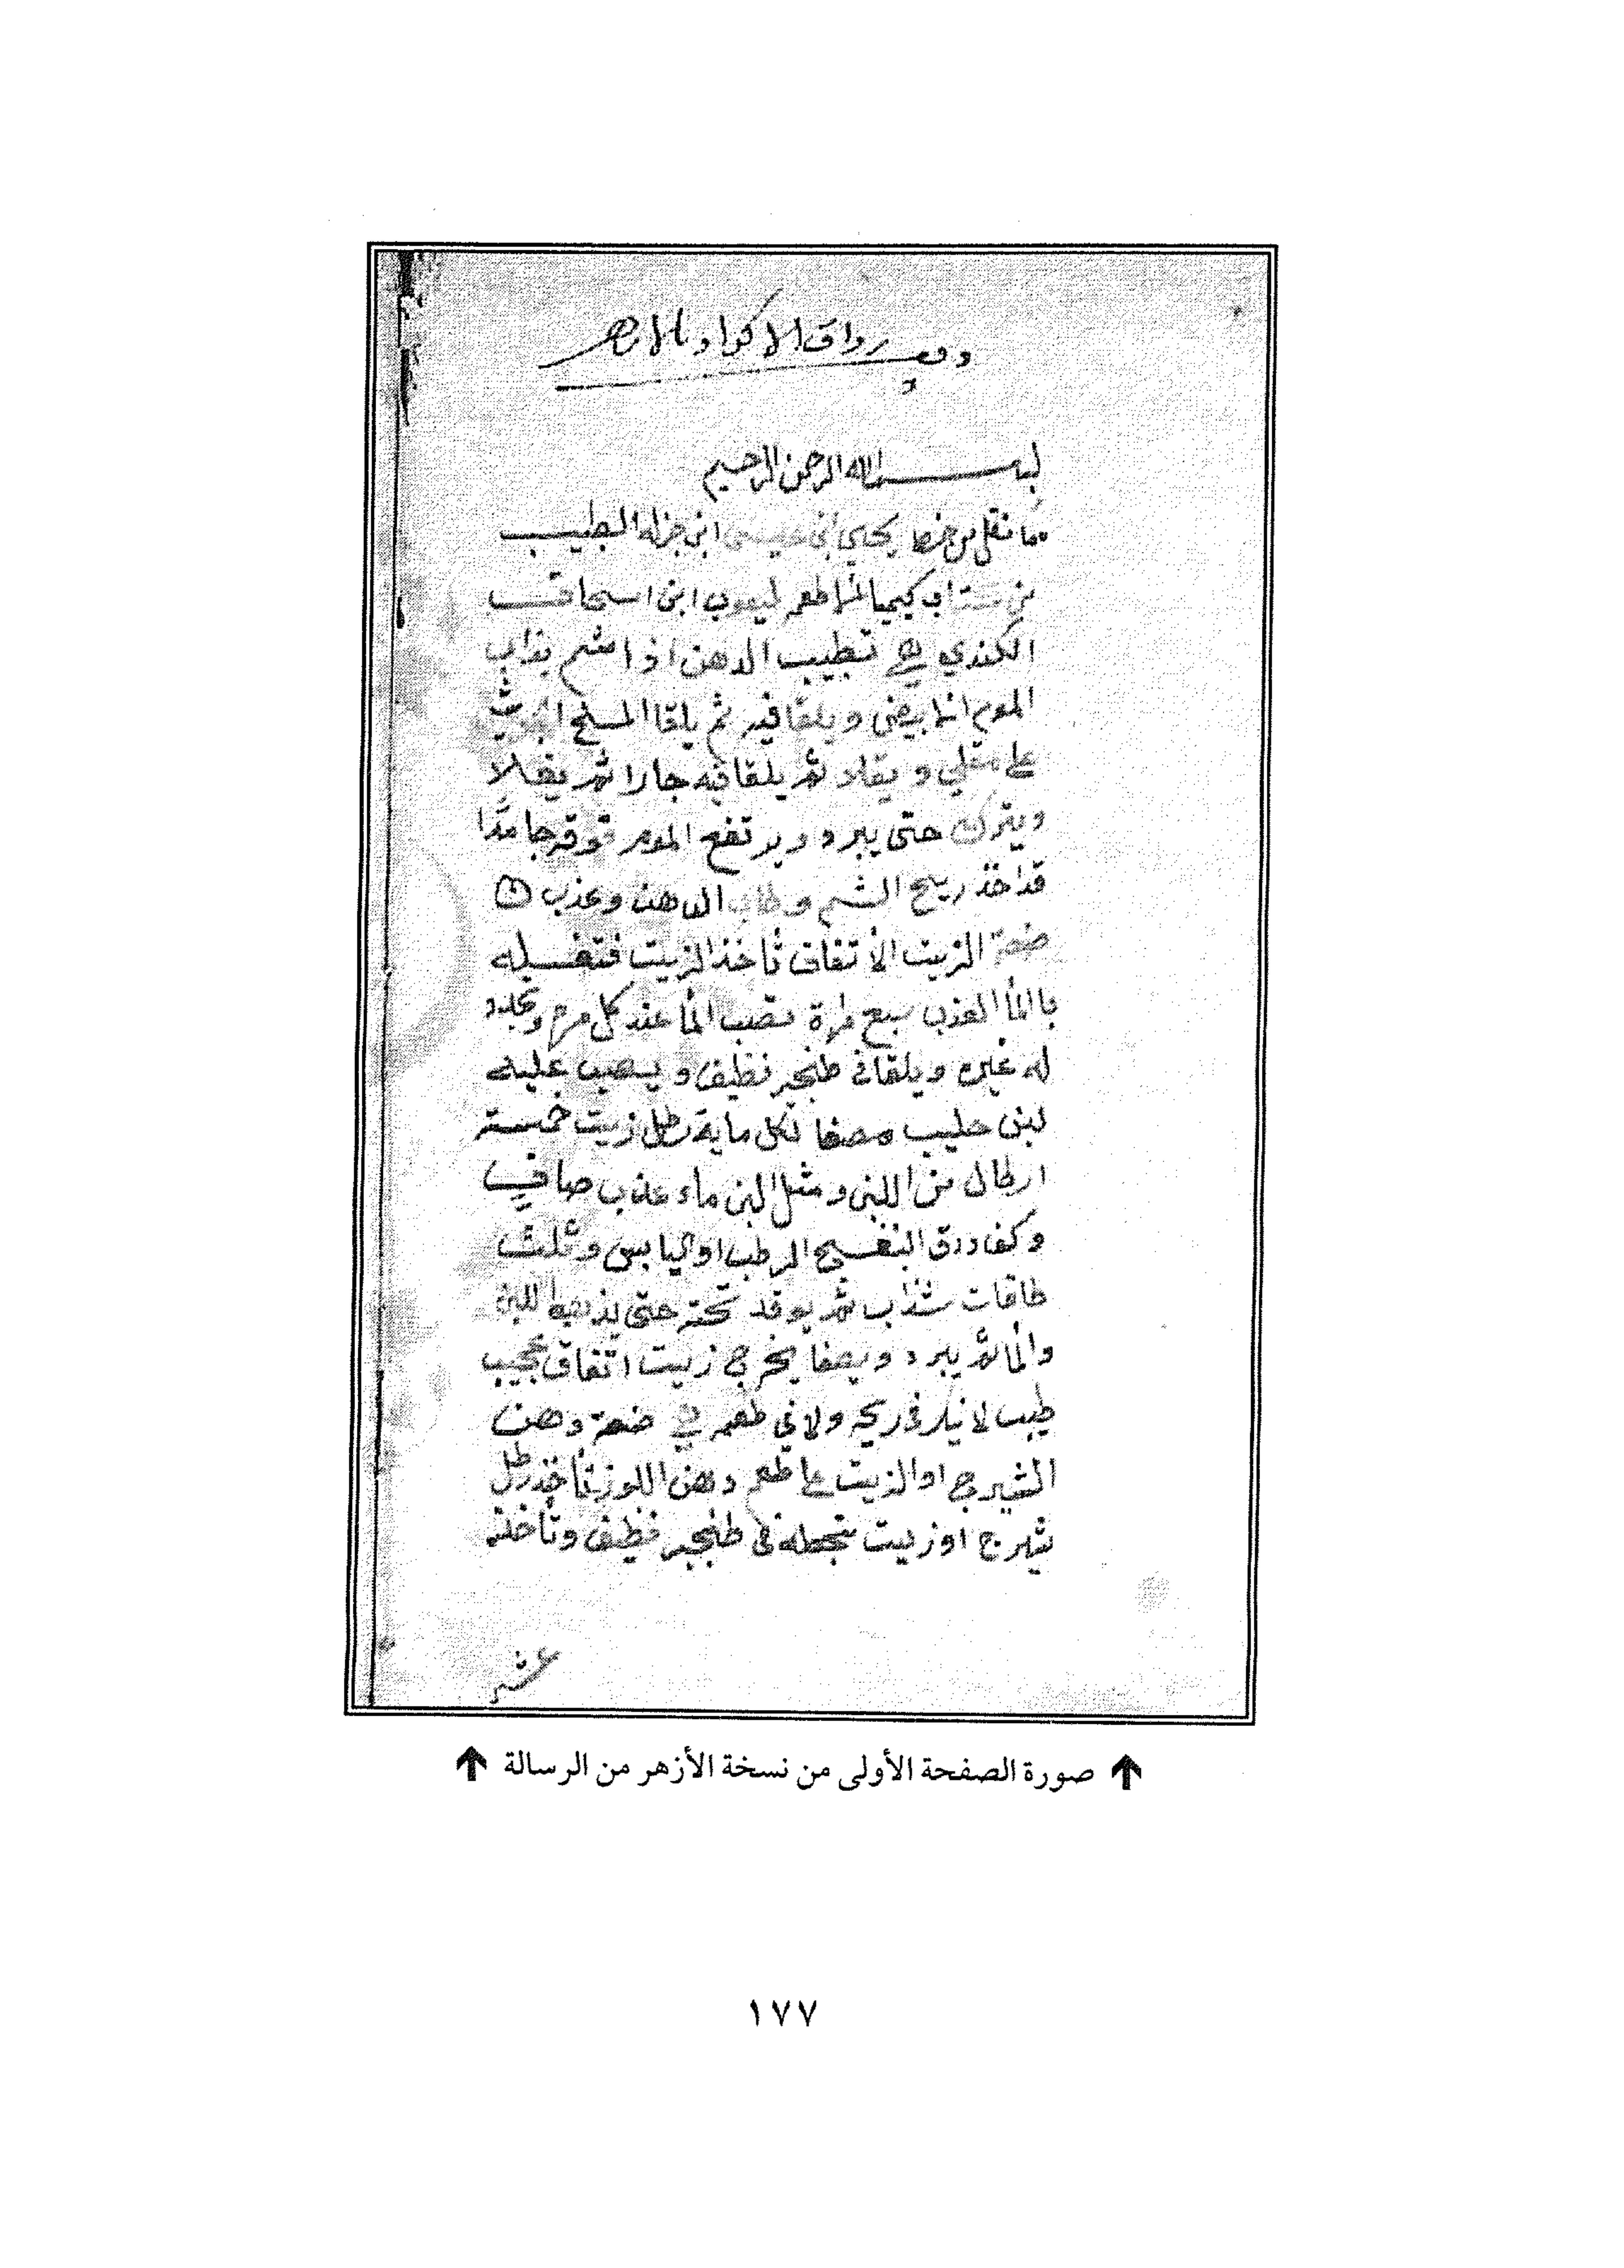 وقف رواق الاكراد بالازهر
بسم الله الرحمن الرحيم
مما نقل من خط يحيى ابن عيسى ابن جزله الطبيب
من كتاب كيميا الطعم ليعوب ابن اسحاق
الكندي في تطيب الدهن اذا اشم يذاب
الموم الابيض ويلقا فيه ثم يلقا الملح
على مقلي و يقلا ثم يلقا فيه حارا ثم يغلا
ويترك حتى يبرد ويرتفع الموم فوقه جامدا
قد اخذ ريح الشم وطاب الدهن وعذب
صعة الزيت الاتفاق تأخذ الزيت فتغسله
بالماالعذب سبع مرة تصب الما عند كل مره وتجدد
له غيره ويلقا في طنجير نظيف ويصب عليه
لبن حليب مصفا لكل ماية رطل زيت خمسة
ارطال من اللبن ومثل البن ماء عذب صافي
وكف ورق البنفسج الرطب او اليابس وثلث
طاقات سذاب ثم يوقد تحته حتى يذهب اللبن
والما ثم يبرد ويصفا يخرج زيت اتفاق عجيب
طيب لا نيلر في ريحه ولا في طعمه في صعة دهن
الشيرج او الزيت على طعم دهن اللوز تأخذ رطل
شيرج او زيت تجعله في طنجير نظيف وتأخذ
عشر
صورة الصفحة الأولى من نسخة الأزهر من الرسالة
١٧٧